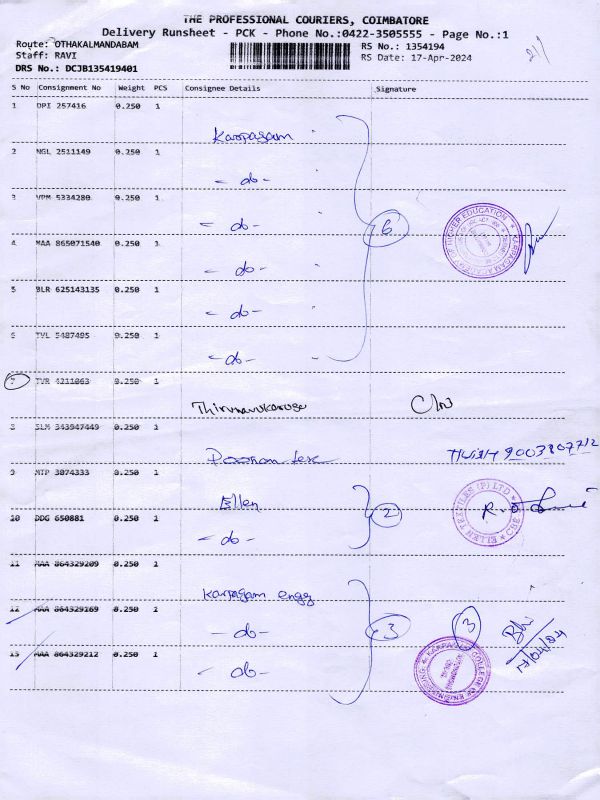 THE PROFESSIONAL COURIERS, COIMBATORE
Delivery Runsheet - PCK - Phone No.:0422-3505555 - Page No.:1
Route: OTHAKALMANDABAM
Staff: RAVI
DRS No.: DCJB135419401
RS No.: 1354194
RS Date: 17-Apr-2024
S No Consignment No Weight PCS Consignee Details Signature
1 DPI 257416 0.250 1
Karpagam
2 NGL 2511149 0.250 1
- do -
3 VPM 5334280 0.250 1
- do -
6
KARPAGAM ACADEMY OF HIGHER EDUCATION
4 MAA 865071540 0.250 1
- do -
5 BLR 625143135 0.250 1
- do -
6 TVL 5487495 0.250 1
- do -
7 TVR 4211063 0.250 1
Thirunavukarasu
8 SLM 343947449 0.250 1
Poonam tex
9003807712
9 MTP 3074333 0.250 1
Ellen
2
ELLEN TEXTILES (P) LTD CBE
10 DDG 650881 0.250 1
- do -
11 MAA 864329209 0.250 1
Karpagam engg
12 MAA 864329169 0.250 1
- do -
3
3
17/04/24
13 MAA 864329212 0.250 1
- do -
KARPAGAM COLLEGE OF ENGINEERING